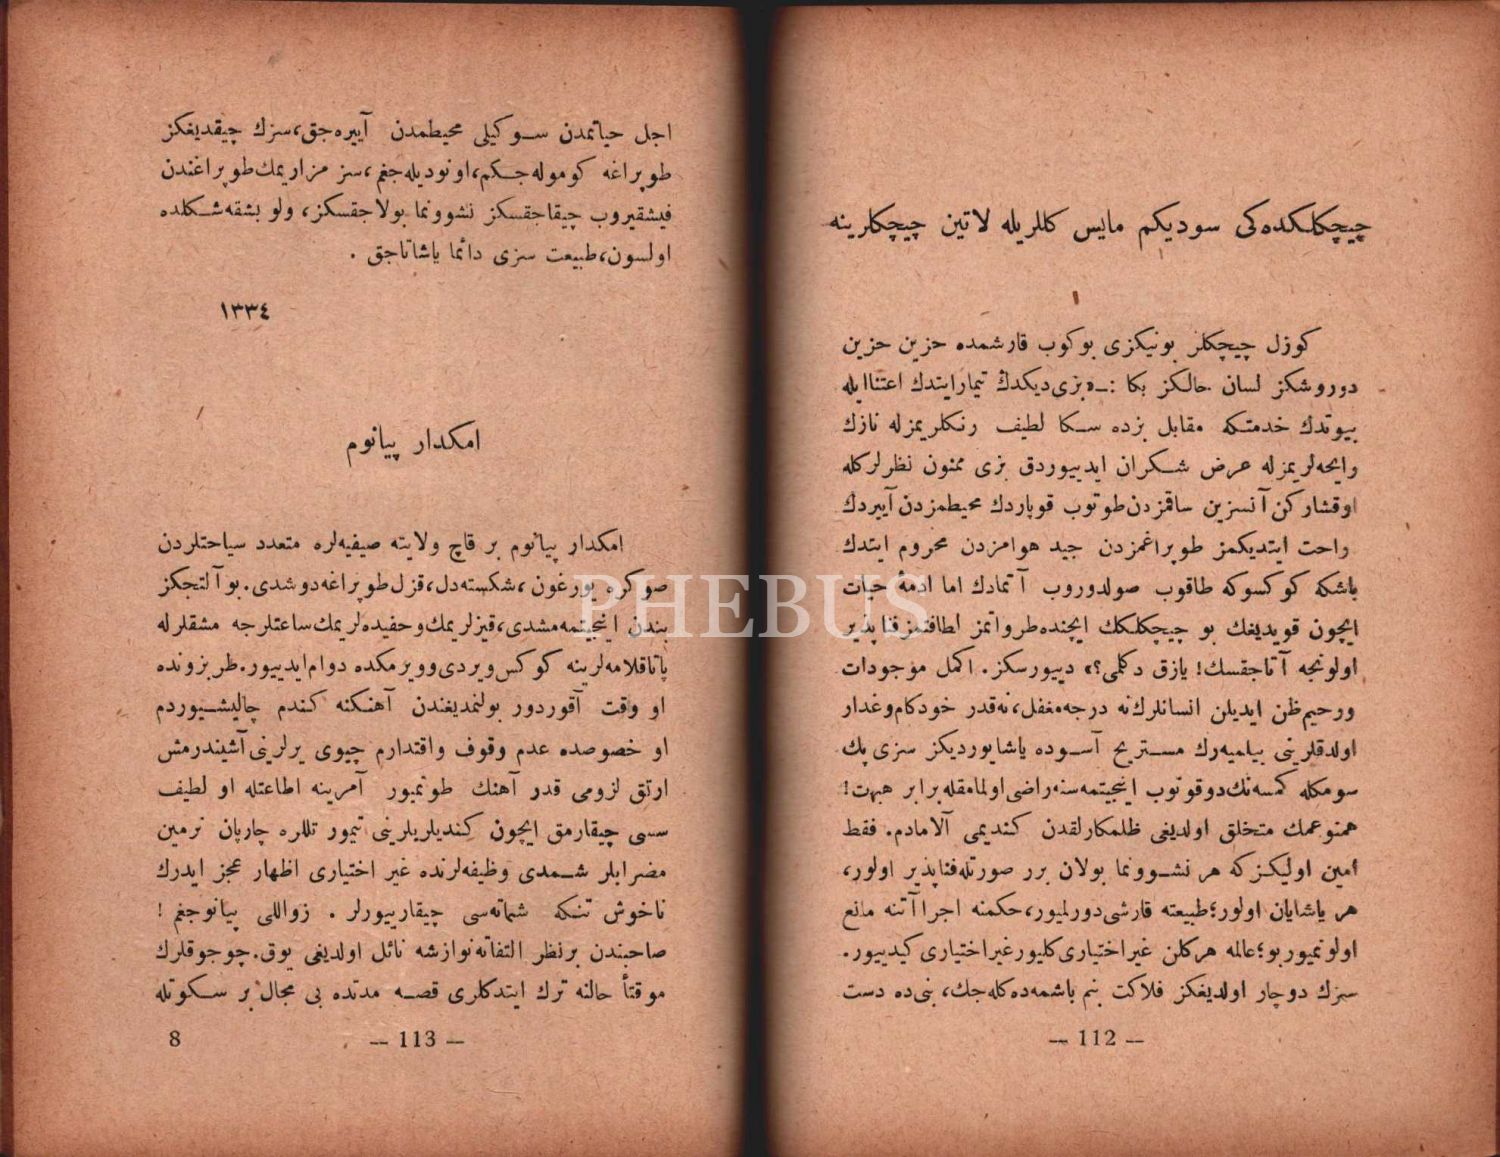 چيچكلكده‌كى سوديكم مايس كللريله لاتين چيچكلرينه
كوزل چيچكلر بونيكزى بوكوب قارشمده حزين حزين
دوروشكز لسان حالكز بكا :ـ «بزى ديكدك تيمار ايتدك اعتنا ايله
بيوتدك خدمتكه مقابل بزده سكا لطيف رنكلريمزله نازك
رايحه‌لريمزله عرض شكران ايدييوردق بزى ممنون نظرلركله
اوقشاركن آنسزين ساقمزدن طوتوب قوپاردك محيطمزدن آييردك
راحت ايتديكمز طوپراغمزدن جيد هوامزدن محروم ايتدك
باشكه كوكسوكه طاقوب صولدوروب آتمادك اما ادمهٔ حيات
ايچون قويديغك بو چيچكلكك ايچنده طرواتمز لطافتمز فناپذير
اولونجه آتاجقسك! يازق دكلمى؟» دييورسكز. اكمل موجودات
ورحيم ظن ايديلن انسانلرك نه درجه مغفل، نه‌قدر خودكام وغدار
اولدقلرينى بيلميه‌رك مستريح آسوده ياشايورديكز سزى پك
سومكله كمسه‌نك دوقونوب انجيتمه‌سنه راضى اولمامقله برابر هيهت!
همنوعمك متخلق اولديغى ظلمكارلقدن كنديمى آلامادم. فقط
امين اوليكز كه هر نشوونما بولان برر صورتله فناپذير اولور،
هر ياشايان اولور؛ طبيعته قارشى دورلميور، حكمنه اجراآتنه مانع
اولونميور بو؛ عالمه هركلن غيراختيارى كليور غيراختيارى كيدييور.
سزك دوچار اولديغكز فلاكت بنم باشمه‌ده كله‌جك، بنى‌ده دست
— 112 —
اجل حياتمدن سوكيلى محيطمدن آييره‌جق، سزك چيقديغكز
طوپراغه كوموله‌جكم، اونوديله‌جغم، سز مزاريمك طوپراغندن
فيشقيروب چيقاجقسكز نشوونما بولاجقسكز، ولو بشقه شكلده
اولسون، طبيعت سزى دائما ياشاتاجق .
١٣٣٤
امكدار پيانوم
امكدار پيانوم بر قاچ ولايته صيفيه‌لره متعدد سياحتلردن
صوكره يورغون، شكسته‌دل، قزل طوپراغه دوشدى. بو آلتجكز
بندن اينجيتمه‌مشدى، قيزلريمك وحفيده‌لريمك ساعتلرجه مشقلرله
پاتاقلامه‌لرينه كوكس ويردى وويرمكده دوام ايدييور. طربزونده
او وقت آقوردور بولنمديغندن آهنكنه كندم چاليشييوردم
او خصوصده عدم وقوف واقتدارم چيوى يرلرينى آشيندرمش
ارتق لزومى قدر آهنك طوتميور آمرينه اطاعتله او لطيف
سسى چيقارمق ايچون كنديلريلرينى تيمور تللره چارپان نرمين
مضرابلر شمدى وظيفه‌لرنده غير اختيارى اظهار عجز ايدرك
ناخوش تنكه شماته‌سى چيقارييورلر . زواللى پيانوجغم !
صاحبندن برنظر التفاته نوازشه نائل اولديغى يوق. چوجوقلرك
موقتاً حالنه ترك ايتدكلرى قصه مدتده بى مجال بر سكوتله
— 113 —
8
PHEBUS